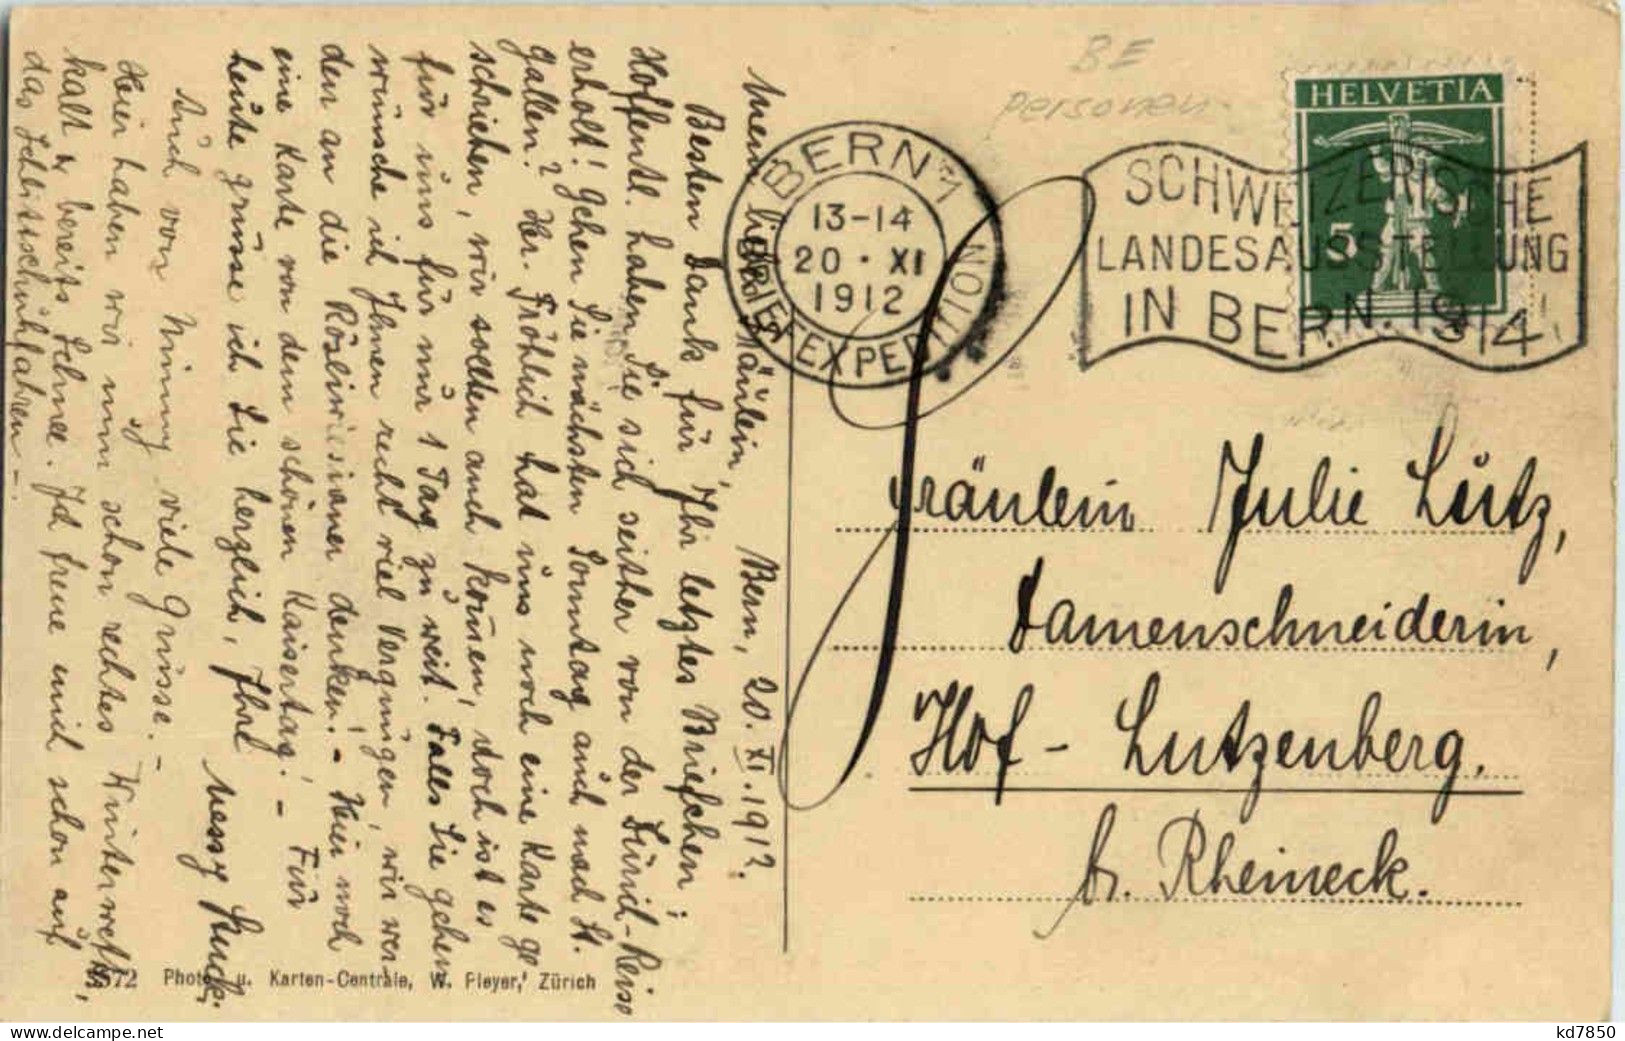 BE
Personen
HELVETIA
5
BERN 1
13-14
20 · XI
1912
BRIEFEXPEDITION
SCHWEIZERISCHE
LANDESAUSSTELLUNG
IN BERN. 1914
Fräulein Julie Lutz,
Damenschneiderin,
Hof - Lutzenberg.
br. Rheineck.
Bern, 20. XI. 1912.
Mein liebes Fräulein,
Besten Dank für Ihr letztes Briefchen;
Hoffentl. haben Sie sich seither von der Zürich-Reise
erholt! Gehen Sie nächsten Sonntag auch nach St.
Gallen? Hr. Fröhlich hat uns noch eine Karte ge
schrieben, wir sollten auch kommen, doch ist es
für uns für nur 1 Tag zu weit. Falls Sie gehen
wünsche ich Ihnen recht viel Vergnügen, wir wer
den an die Rösliwiesianer denken! - Hier noch
eine Karte von dem schönen Kaisertag! - Für
heute grüsse ich Sie herzlich, Ihre
Messy
Auch von Mimmy viele Grüsse. -
Hier haben wir nun schon rechtes Winterwetter,
kalt u. bereits Schnee. Ich freue mich schon auf
das Schlittschuhfahren -.
3672 Photo u. Karten-Centrale, W. Pleyer, Zürich
kd7850